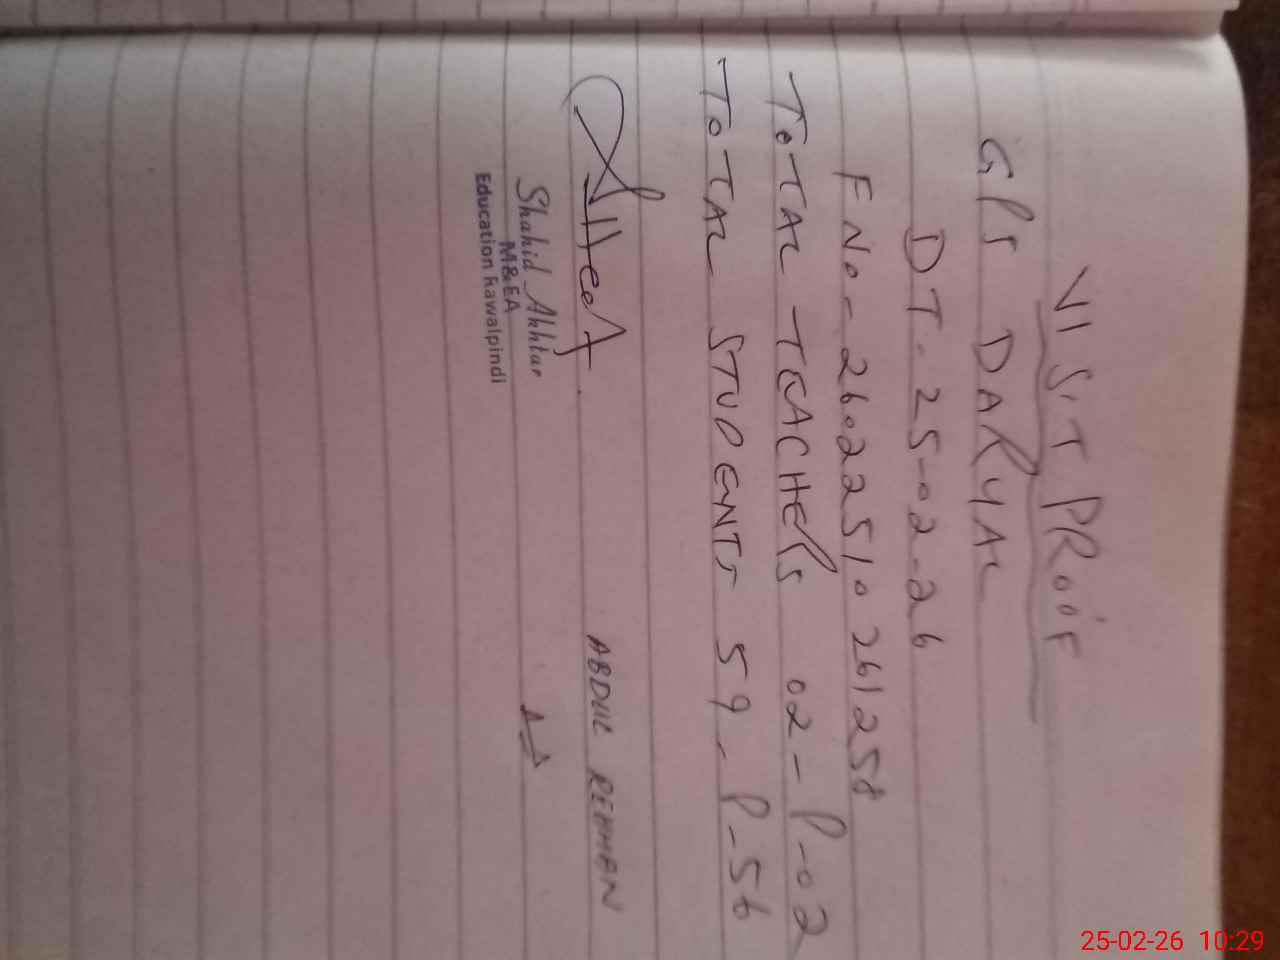 VISIT PROOF
GPS DARYAL
DT. 25-02-26
FNo- 26022510261258
TOTAL TEACHERS 02- P-02
TOTAL STUDENTS 59- P-56
ABDUL REHMAN
Shahid Akhtar
M&EA
Education Rawalpindi
25-02-26 10:29